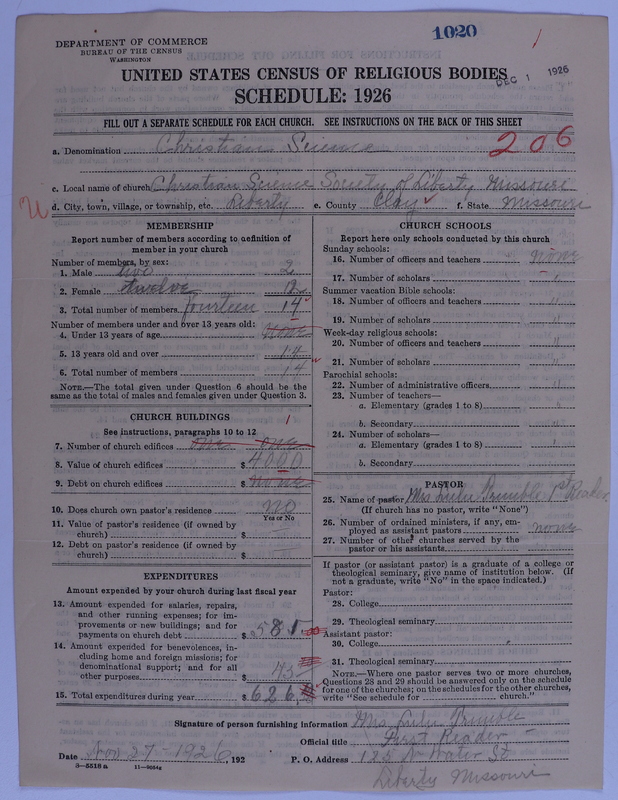 1020
DEPARTMENT OF COMMERCE
BUREAU OF THE CENSUS
WASHINGTON
UNITED STATES CENSUS OF RELIGIOUS BODIES
DEC 1 1926
SCHEDULE: 1926
FILL OUT A SEPARATE SCHEDULE FOR EACH CHURCH. SEE INSTRUCTIONS ON THE BACK OF THIS SHEET
a. Denomination Christian Science 206
c. Local name of church Christian Science Society of Liberty Missouri
d. City, town, village, or township, etc. Liberty e. County Clay f. State Missouri
MEMBERSHIP
Report number of members according to definition of
member in your church
Number of members, by sex:
1. Male two 2
2. Female twelve 12
3. Total number of members fourteen 14
Number of members under and over 13 years old:
4. Under 13 years of age none
5. 13 years old and over 14
6. Total number of members 14
NOTE.—The total given under Question 6 should be the
same as the total of males and females given under Question 3.
CHURCH BUILDINGS
See instructions, paragraphs 10 to 12 1
7. Number of church edifices one one
8. Value of church edifices $ 4000
9. Debt on church edifices $ none
10. Does church own pastor's residence no
Yes or No
11. Value of pastor's residence (if owned by
church) $
12. Debt on pastor's residence (if owned by
church) $
EXPENDITURES
Amount expended by your church during last fiscal year
13. Amount expended for salaries, repairs,
and other running expenses; for im-
provements or new buildings; and for
payments on church debt $ 581
14. Amount expended for benevolences, in-
cluding home and foreign missions; for
denominational support; and for all
other purposes $ 45
15. Total expenditures during year $ 626
CHURCH SCHOOLS
Report here only schools conducted by this church
Sunday schools:
16. Number of officers and teachers none
17. Number of scholars "
Summer vacation Bible schools:
18. Number of officers and teachers "
19. Number of scholars "
Week-day religious schools:
20. Number of officers and teachers "
21. Number of scholars "
Parochial schools:
22. Number of administrative officers "
23. Number of teachers—
a. Elementary (grades 1 to 8) "
b. Secondary "
24. Number of scholars—
a. Elementary (grades 1 to 8)
b. Secondary
PASTOR
25. Name of pastor Mrs Lulu Trimble 1st Reader
(If church has no pastor, write "None")
26. Number of ordained ministers, if any, em-
ployed as assistant pastors none
27. Number of other churches served by the
pastor or his assistants
If pastor (or assistant pastor) is a graduate of a college or
theological seminary, give name of institution below. (If
not a graduate, write "No" in the space indicated.)
Pastor:
28. College
29. Theological seminary
Assistant pastor:
30. College
31. Theological seminary
NOTE.—Where one pastor serves two or more churches,
Questions 28 and 29 should be answered only on the schedule
for one of the churches; on the schedules for the other churches,
write "See schedule for church."
Signature of person furnishing information Mrs. Lulu Trimble
Official title First Reader
Date Nov 27-1926, 192 P. O. Address 125 N Water St
3—5518 a 11—9064a
Liberty Missouri